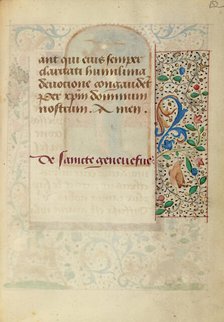 ant qui eius semper
claritati humilima
deuotione congaudēt
Per xp̄m dominum
nostrum. Amen.
De sancte geneuefue